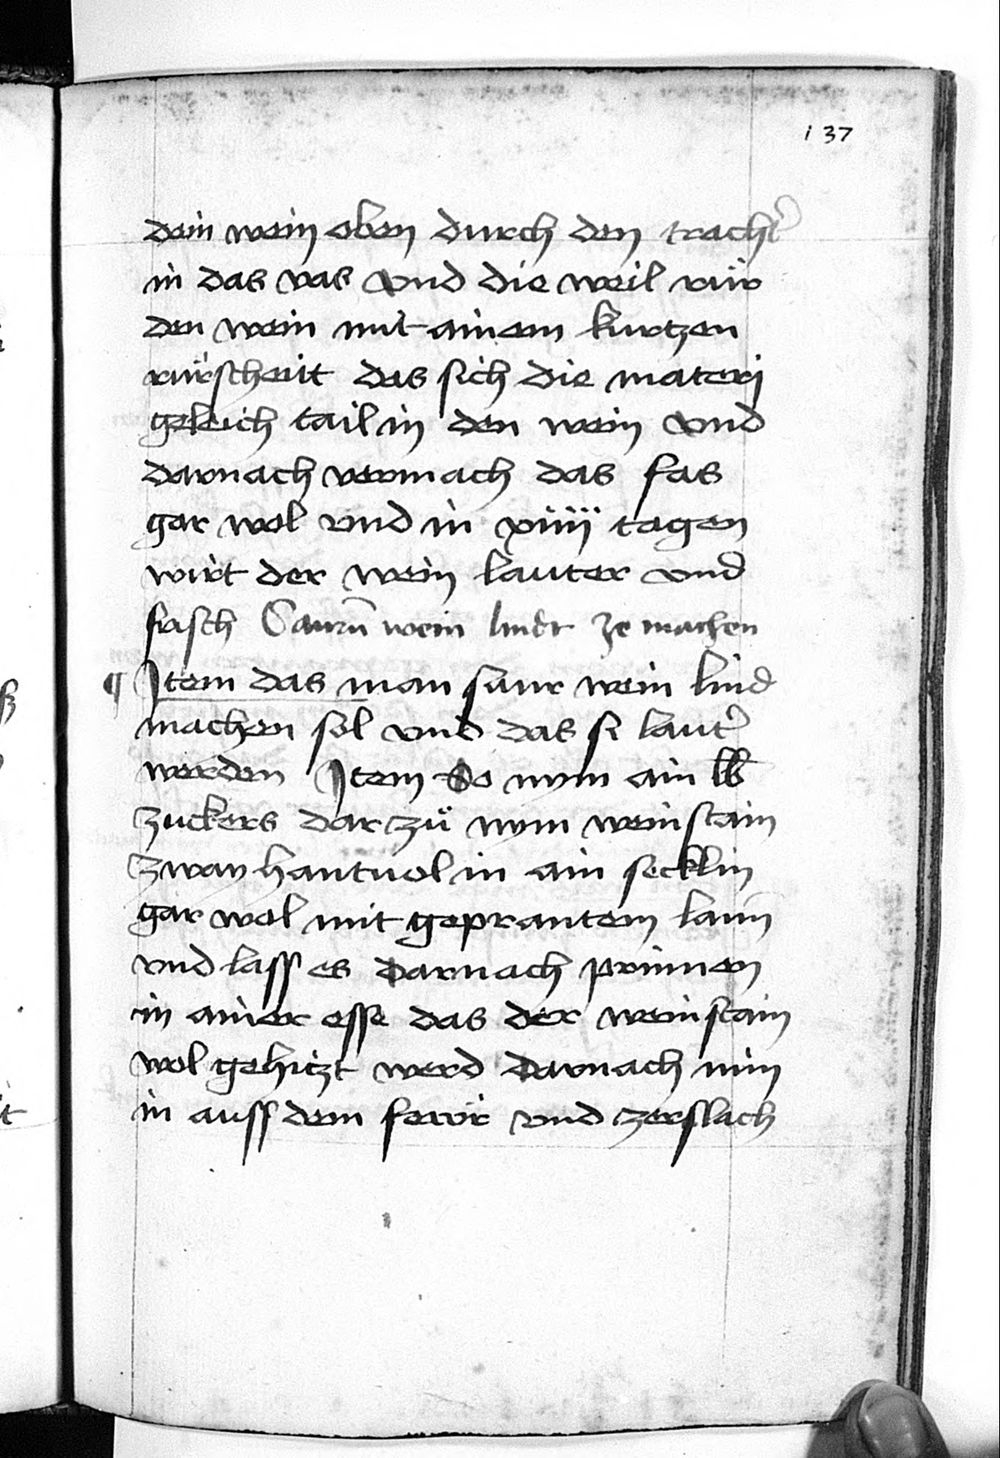 137
dein wein oben durch den tracht᷑
in das vas vnd die weil rür
den wein mit ainem kurtzen
rürscheit das sich die materj
geleich tail in den wein vnd
darnach vermach das fas
gar wol vnd in xiiij tagen
wirt der wein lauter vnd
frisch Saurn̄ wein lindt ze machen
¶ Jtem das man saur wein lind
machen sol vnd das si laut᷑
werden Jtem So nym ain lb
zuckers dar zů nym weinstain
zway hantuol in ain secklin
gar wol mit geprantem laim
vnd lass es darnach prinnen
in ainer esse das der weinstain
wol gehitzt werd darnach nim
in auss dem fewr vnd zerslach